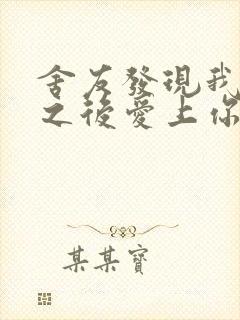 舍友發現我
之後愛上你
某某寶